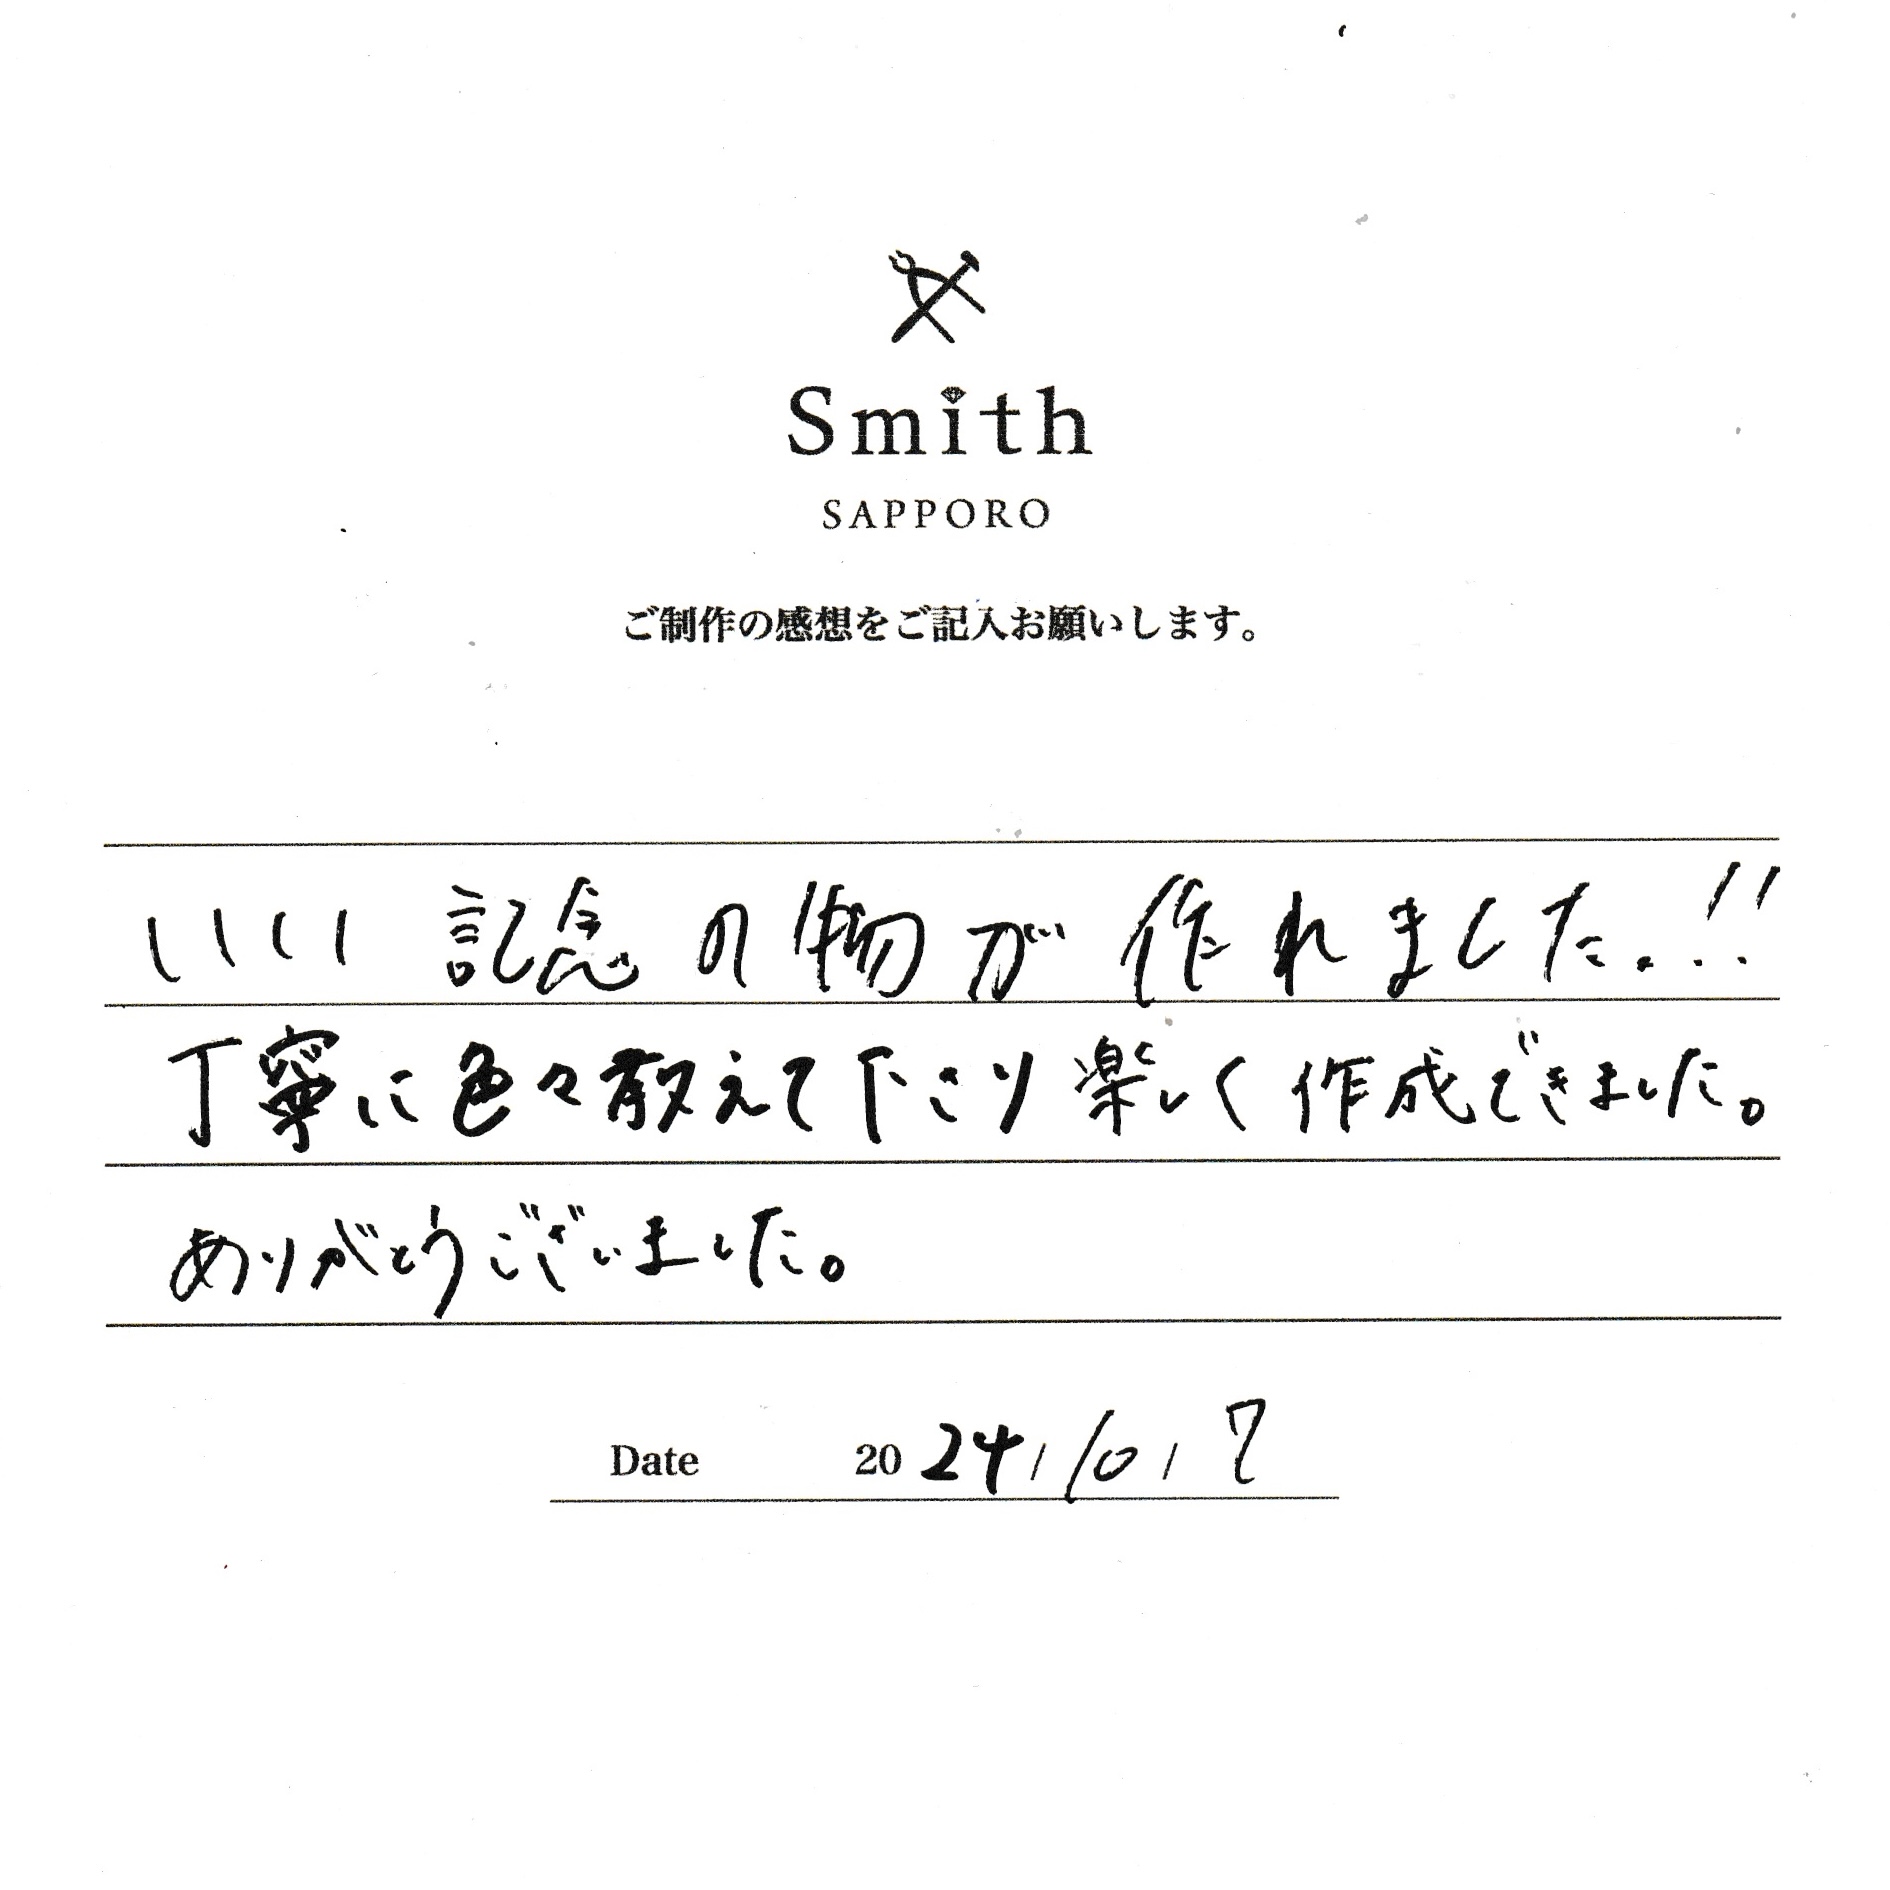 Smith
SAPPORO
ご制作の感想をご記入お願いします。
いい記念の物が作れました.!!
丁寧に色々教えて下さり楽しく作成できました。
ありがとうございました。
Date 2024/10/7